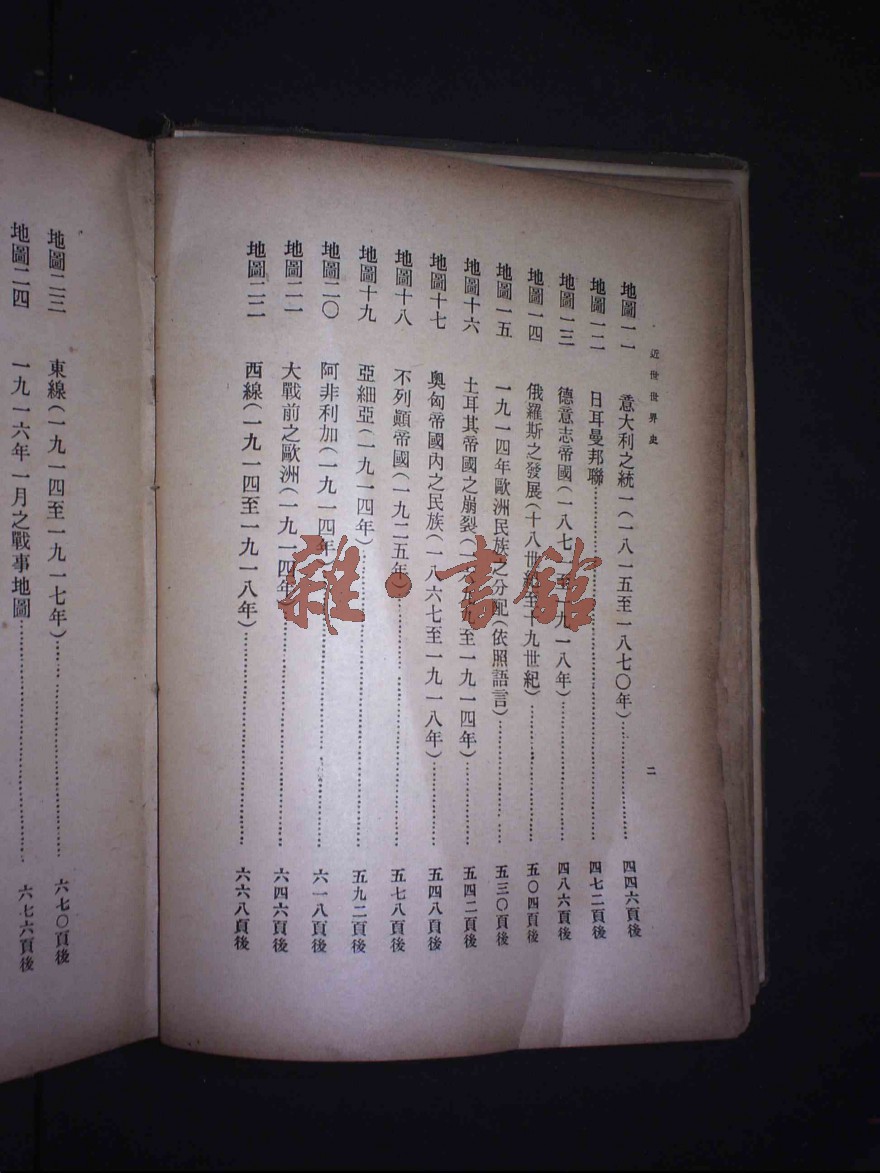 近世世界史
二
地圖一一 意大利之統一(一八一五至一八七〇年)……四四六頁後
地圖一二 日耳曼邦聯……四七二頁後
地圖一三 德意志帝國(一八七一至一九一八年)……四八六頁後
地圖一四 俄羅斯之發展(十八世紀至十九世紀)……五〇四頁後
地圖一五 一九一四年歐洲民族之分配(依照語言)……五三〇頁後
地圖十六 土耳其帝國之崩裂(一 至一九一四年)……五四二頁後
地圖十七 奧匈帝國內之民族(一八六七至一九一八年)……五四八頁後
地圖十八 不列顚帝國(一九二五年)……五七八頁後
地圖十九 亞細亞(一九一四年)……五九二頁後
地圖二〇 阿非利加(一九一四年)……六一八頁後
地圖二一 大戰前之歐洲(一九一四年)……六四六頁後
地圖二二 西線(一九一四至一九一八年)……六六八頁後
地圖二三 東線(一九一四至一九一七年)……六七〇頁後
地圖二四 一九一六年一月之戰事地圖……六七六頁後
雜·書館